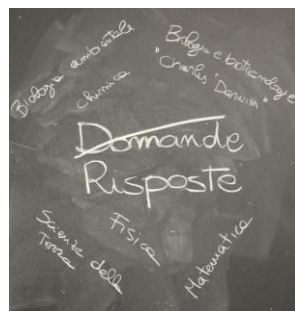 Biologia ambientale
Chimica
Biologia e biotecnologie
"Charles Darwin"
Domande
Risposte
Scienze della
Terra
Fisica
Matematica